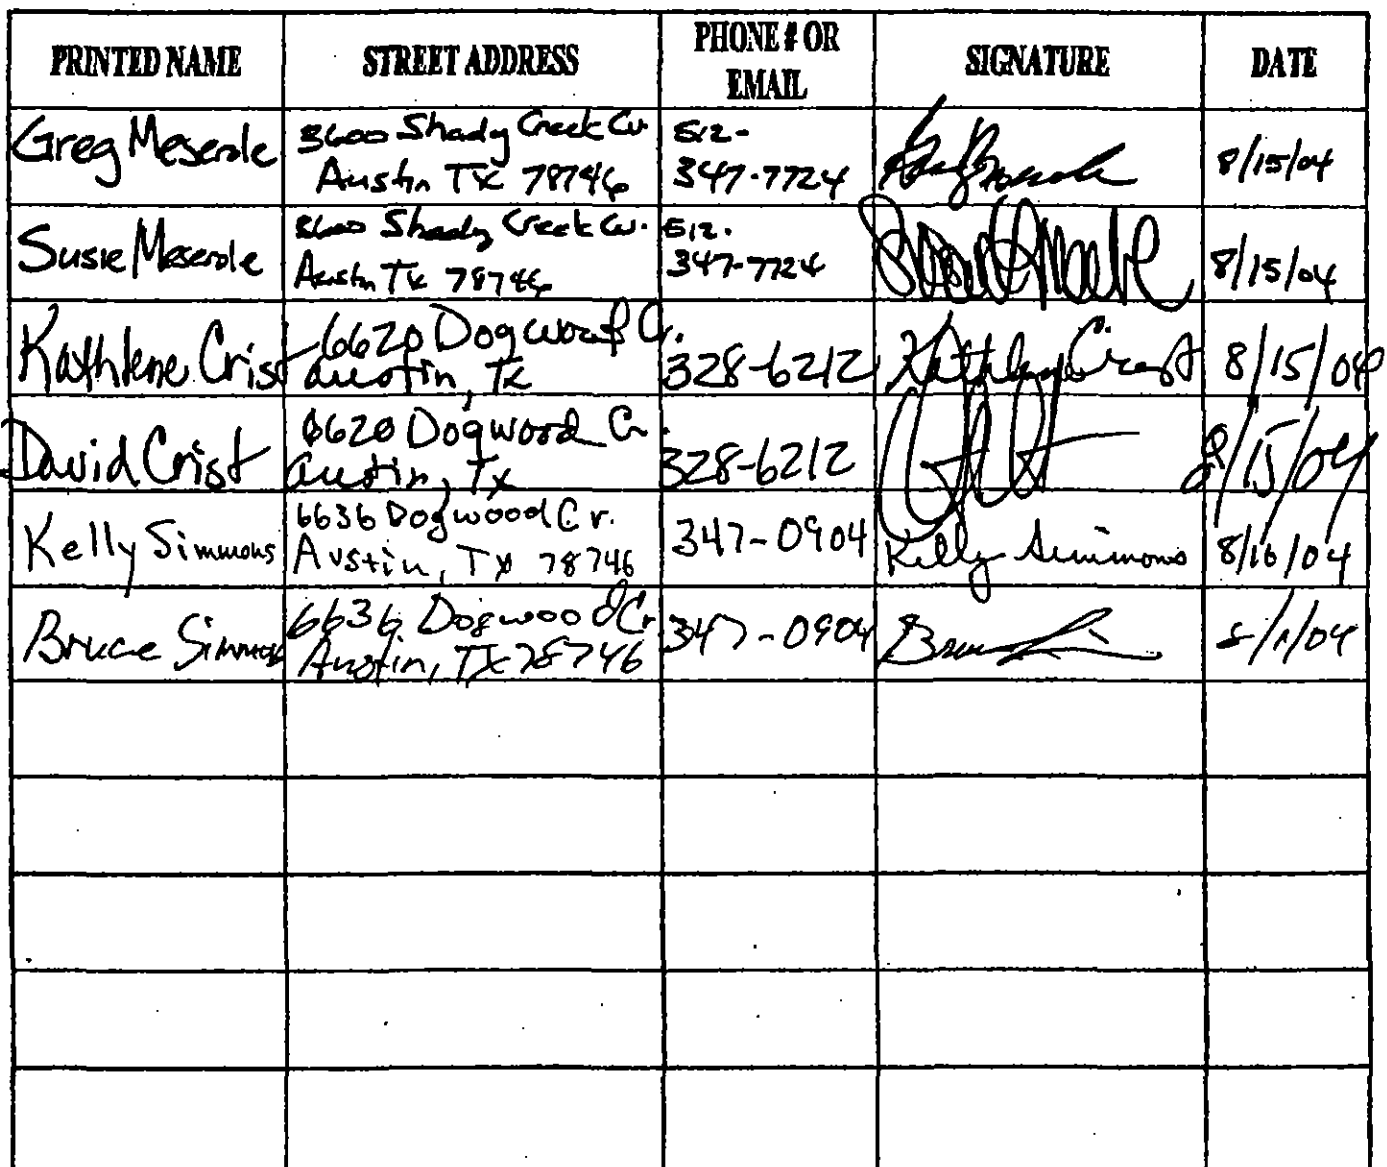 PRINTED NAME STREET ADDRESS PHONE # OR EMAIL SIGNATURE DATE
Greg Meserole 3600 Shady Creek Cv. 512-
Austin TX 78746 347-7724 8/15/04
Susie Meserole 3600 Shady Creek Cv. 512.
Austin TX 78746 347-7724 8/15/04
Kathlene Crist 6620 Dogwood Cr.
Austin, TX 328-6212 Kathlene Crist 8/15/04
David Crist 6620 Dogwood Cr.
Austin, TX 328-6212 8/15/04
Kelly Simmons 6636 Dogwood Cr.
Austin, TX 78746 347-0904 Kelly Simmons 8/16/04
Bruce Simmons 6636 Dogwood Cr
Austin, TX 78746 347-0904 8/1/04